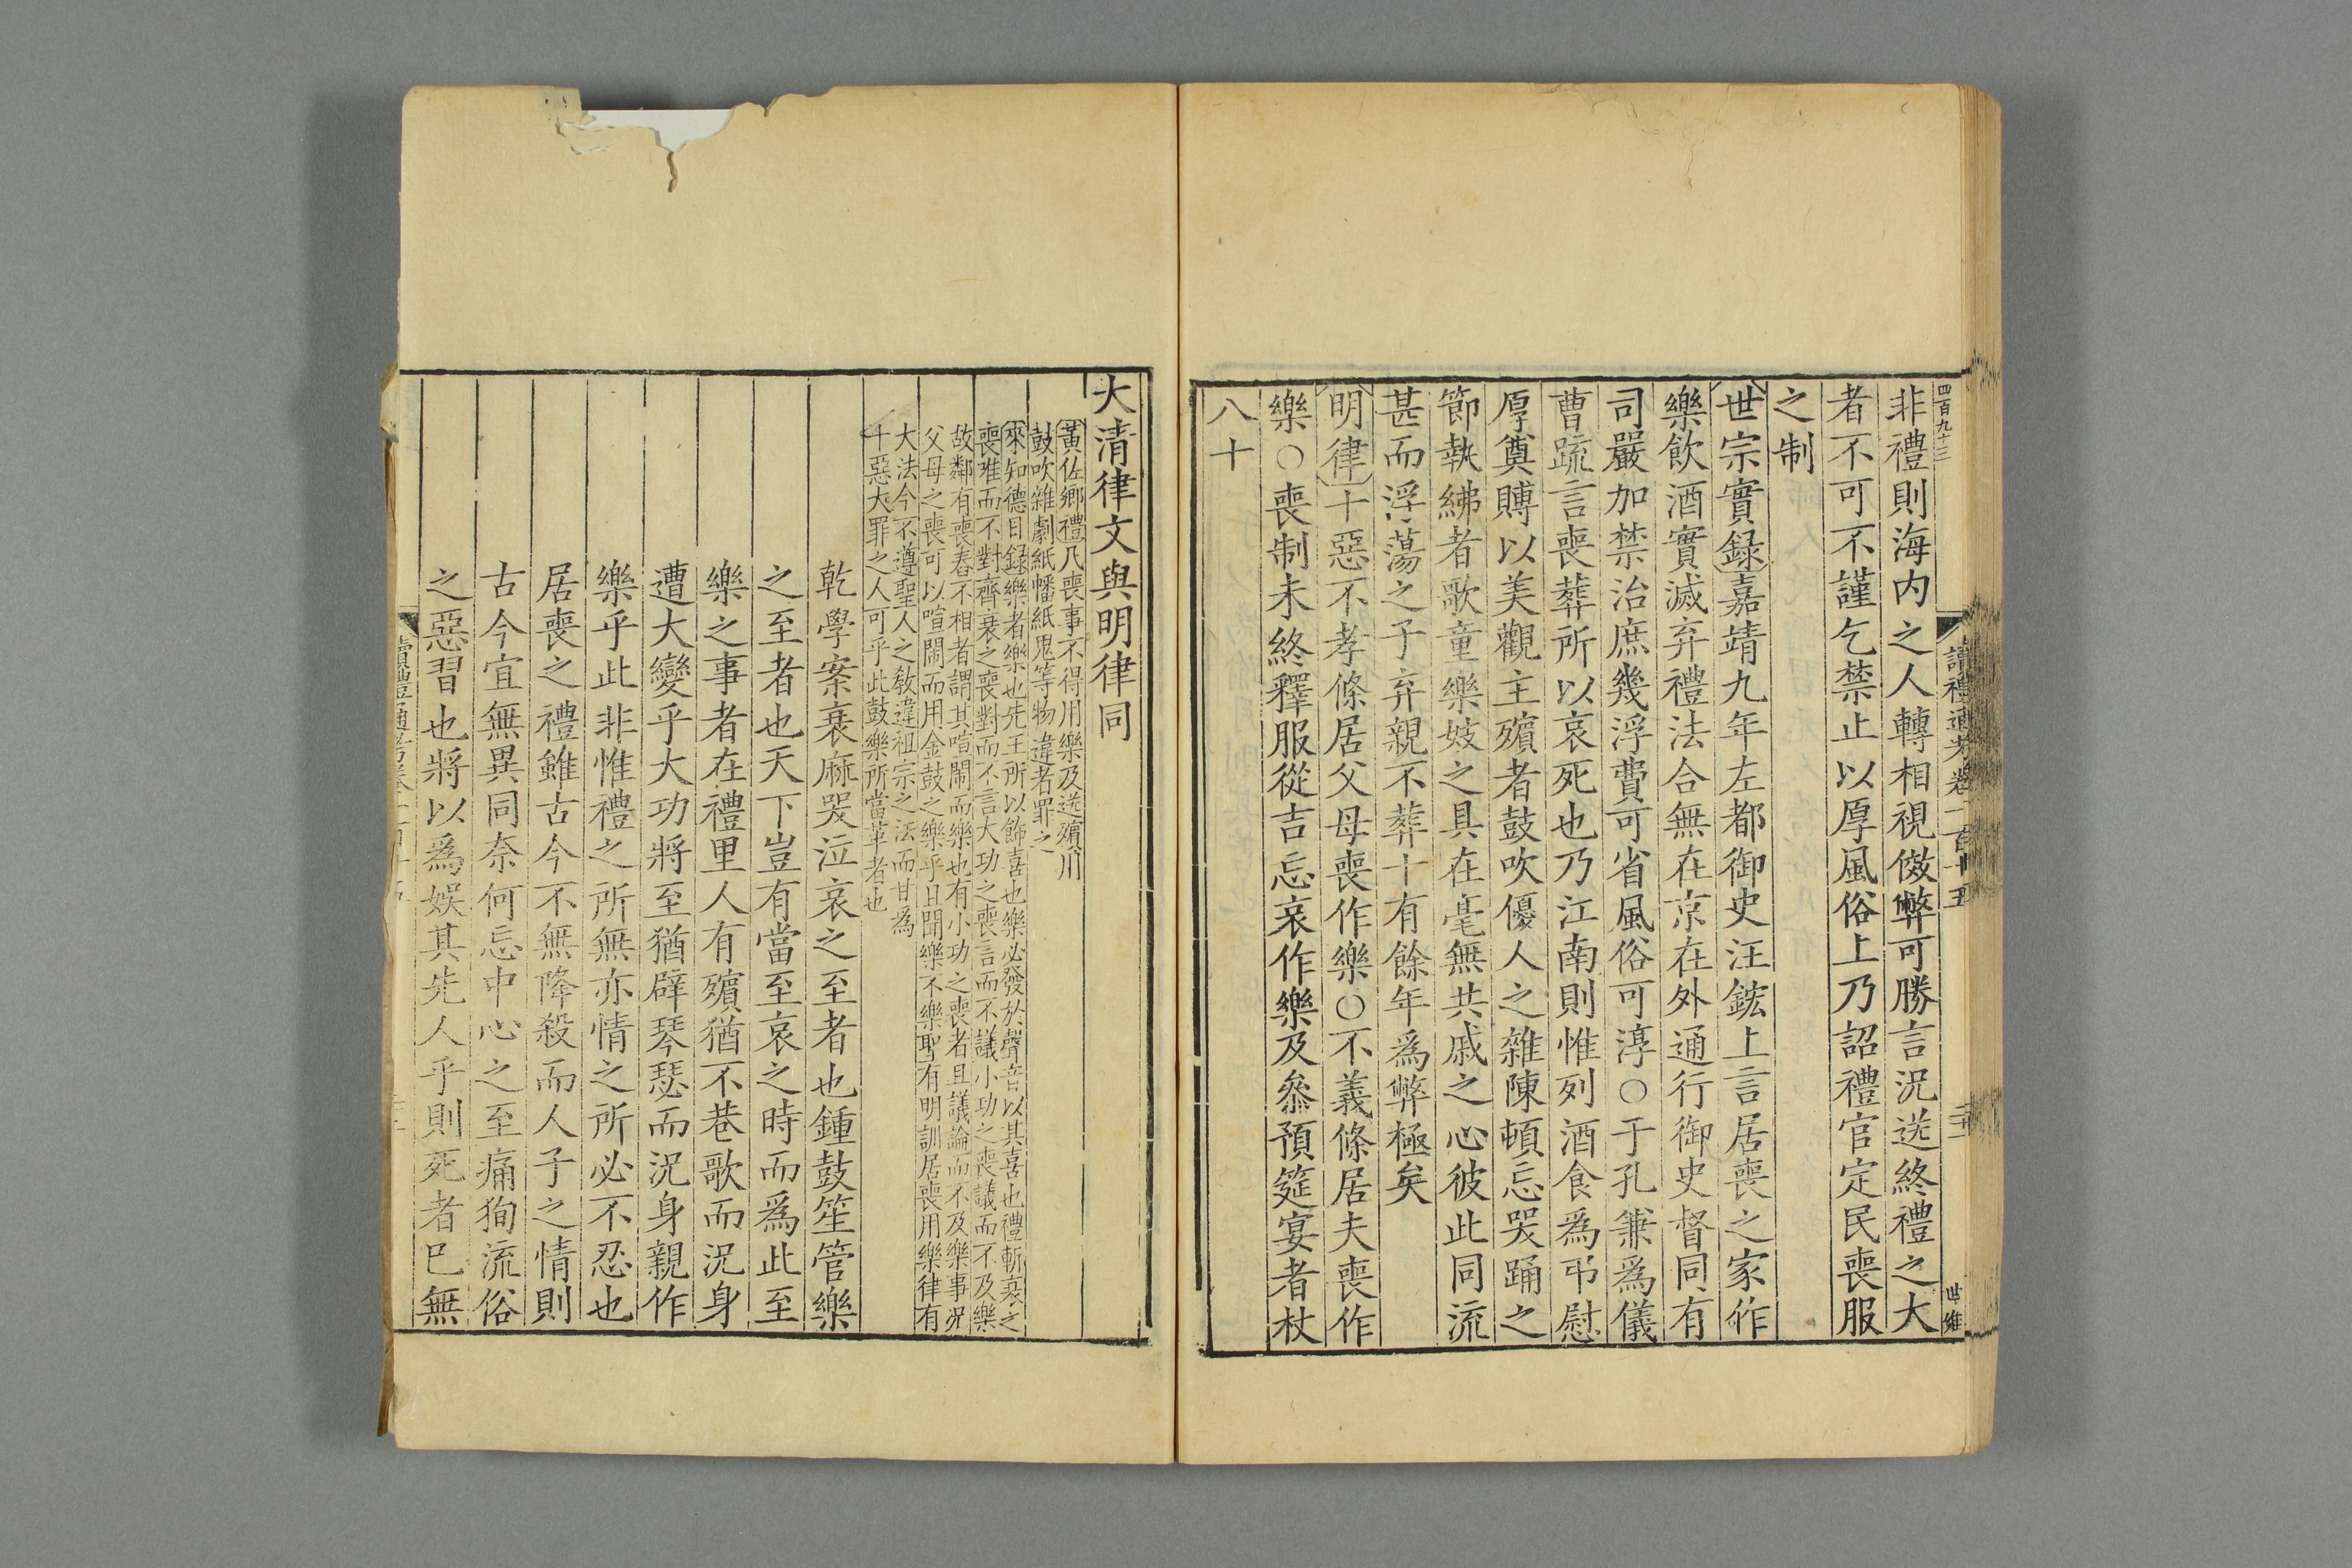 四百九十三
讀禮通考卷一百十五
世維
非禮則海内之人轉相視傚弊可勝言況送終禮之大
者不可不謹乞禁止以厚風俗上乃詔禮官定民喪服
之制
世宗實録嘉靖九年左都御史汪鋐上言居喪之家作
樂飲酒實滅弃禮法合無在京在外通行御史督同有
司嚴加禁治庶幾浮費可省風俗可淳○于孔兼為儀
曹疏言喪葬所以哀死也乃江南則惟列酒食為弔慰
厚奠賻以美觀主殯者鼓吹優人之雜陳頓忘哭踊之
節執紼者歌童樂妓之具在毫無共戚之心彼此同流
甚而浮蕩之子弃親不葬十有餘年為弊極矣
明律十惡不孝條居父母喪作樂○不義條居夫喪作
樂○喪制未終釋服從吉忘哀作樂及叅預筵宴者杖
八十
大清律文與明律同
黃佐鄉禮凡喪事不得用樂及送殯用
鼓吹雜劇紙幡紙鬼等物違者罪之
來知德日録樂者樂也先王所以飾喜也樂必發於聲音以其喜也禮斬衰之
喪唯而不對齊衰之喪對而不言大功之喪言而不議小功之喪議而不及樂
故鄰有喪舂不相者謂其喧鬧而樂也有小功之喪者且議論而不及樂事況
父母之喪可以喧鬧而用金鼓之樂乎且聞樂不樂聖有明訓居喪用樂律有
大法今不遵聖人之教違祖宗之法而甘為
十惡大罪之人可乎此鼓樂所當革者也
乾學案衰麻哭泣哀之至者也鍾鼓笙管樂
之至者也天下豈有當至哀之時而為此至
樂之事者在禮里人有殯猶不巷歌而況身
遭大變乎大功將至猶辟琴瑟而況身親作
樂乎此非惟禮之所無亦情之所必不忍也
居喪之禮雖古今不無降殺而人子之情則
古今宜無異同奈何忘中心之至痛狥流俗
之惡習也將以為娛其先人乎則死者已無